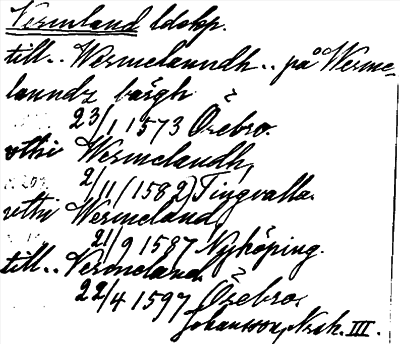 Vermland ldskp.
till.. Wermelanndh.. på Werme-
lanndz bärgh
23/1 1573 Örebro.
vthi Wermelandh,
2/11 (1582) Tingvalla.
vthi Wermeland,
21/9 1587 Nyköping.
till.. Vermeland.
22/4 1597 Örebro,
Johansson, Nrk. III.